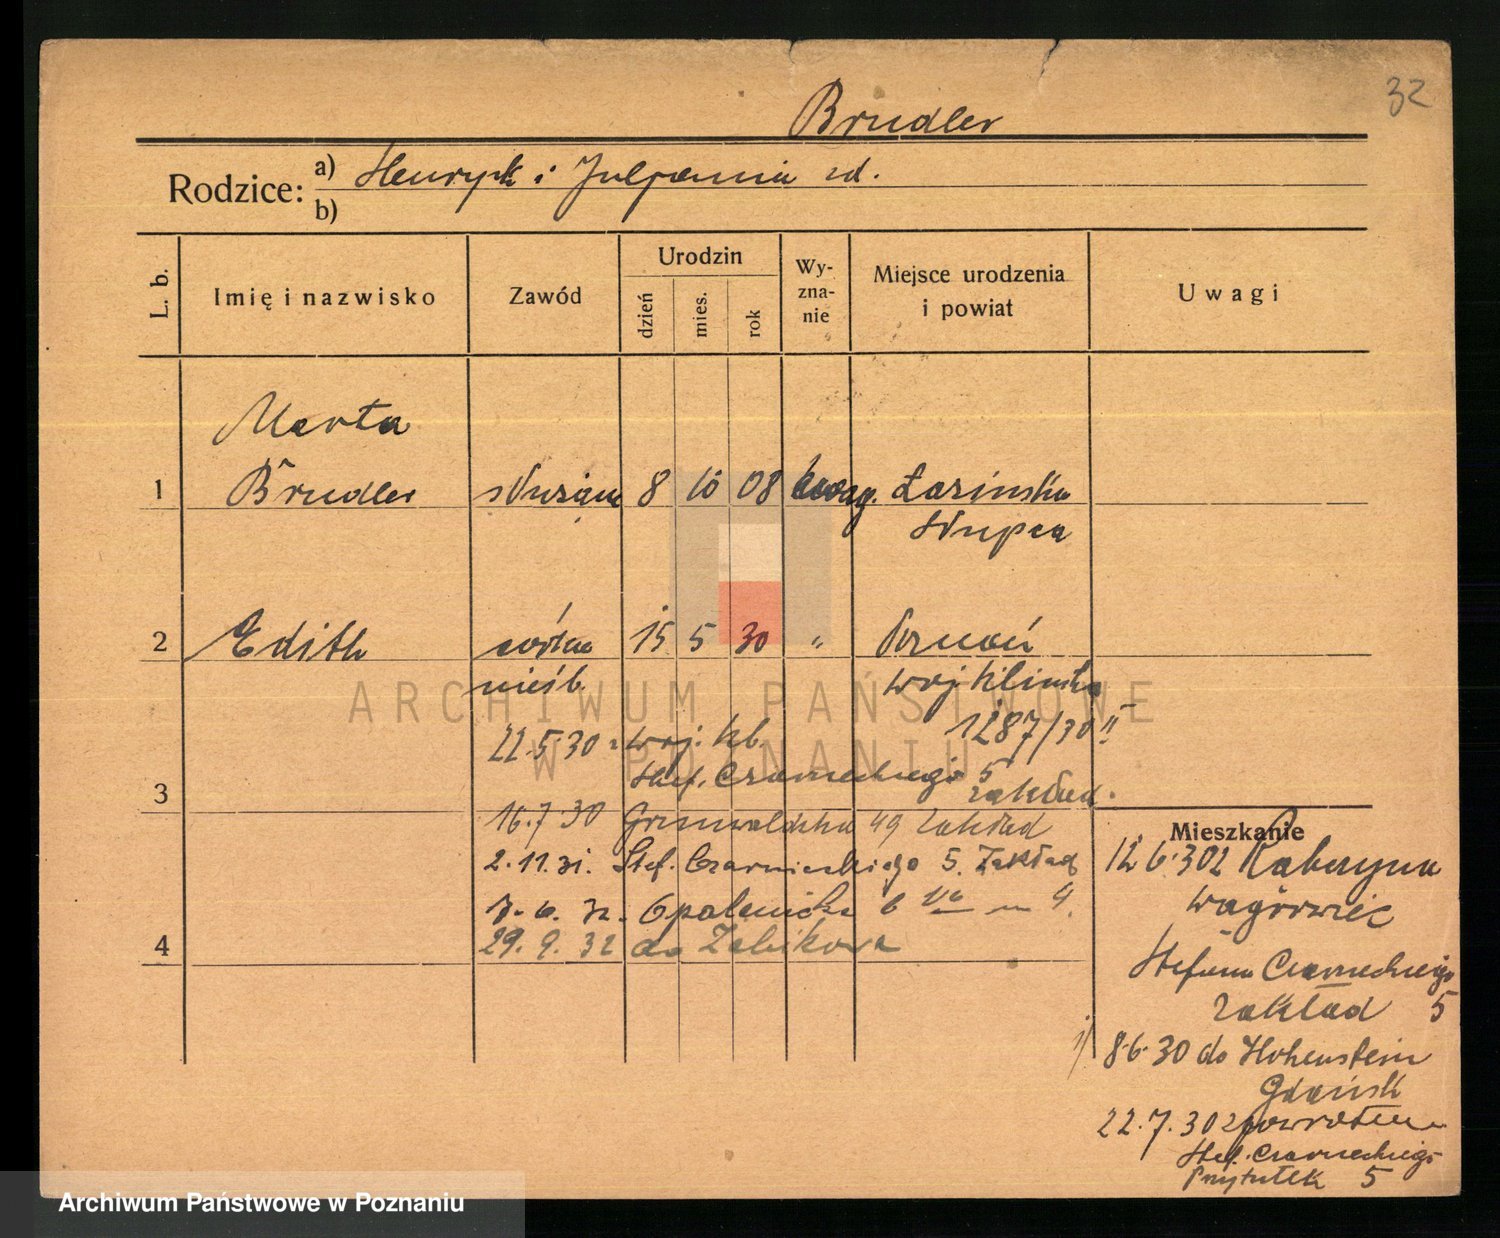 32
Brudler
Rodzice: a) Henryk i Julianna zd.
b)
L. b. Imię i nazwisko Zawód Urodzin dzień mies. rok Wy-zna-nie Miejsce urodzenia i powiat Uwagi
Marta
1 Brudler służąca 8 10 08 ewag.
Słupca
2 Edith córka 15 5 30 " Poznań
nieśl. woj.
22.5.30 1287/30 II
3 Stef. Czarneckiego 5 zakład.
16.7.30 Grunwaldzka 49 Zakład
2.11.31. Stef. Czarnieckiego 5. Zakład
7.6.32. Opalenicka
4 29.9.32 do Żabikowa
Mieszkanie
12.6.30 z
Wągrowiec
Stefana Czarneckiego
zakład 5
1) 8.6.30 do Hohenstein
Gdańsk
22.7.30 z powrotem
Stef. Czarneckiego
Przytułek 5
ARCHIWUM PAŃSTWOWE
W POZNANIU
Archiwum Państwowe w Poznaniu